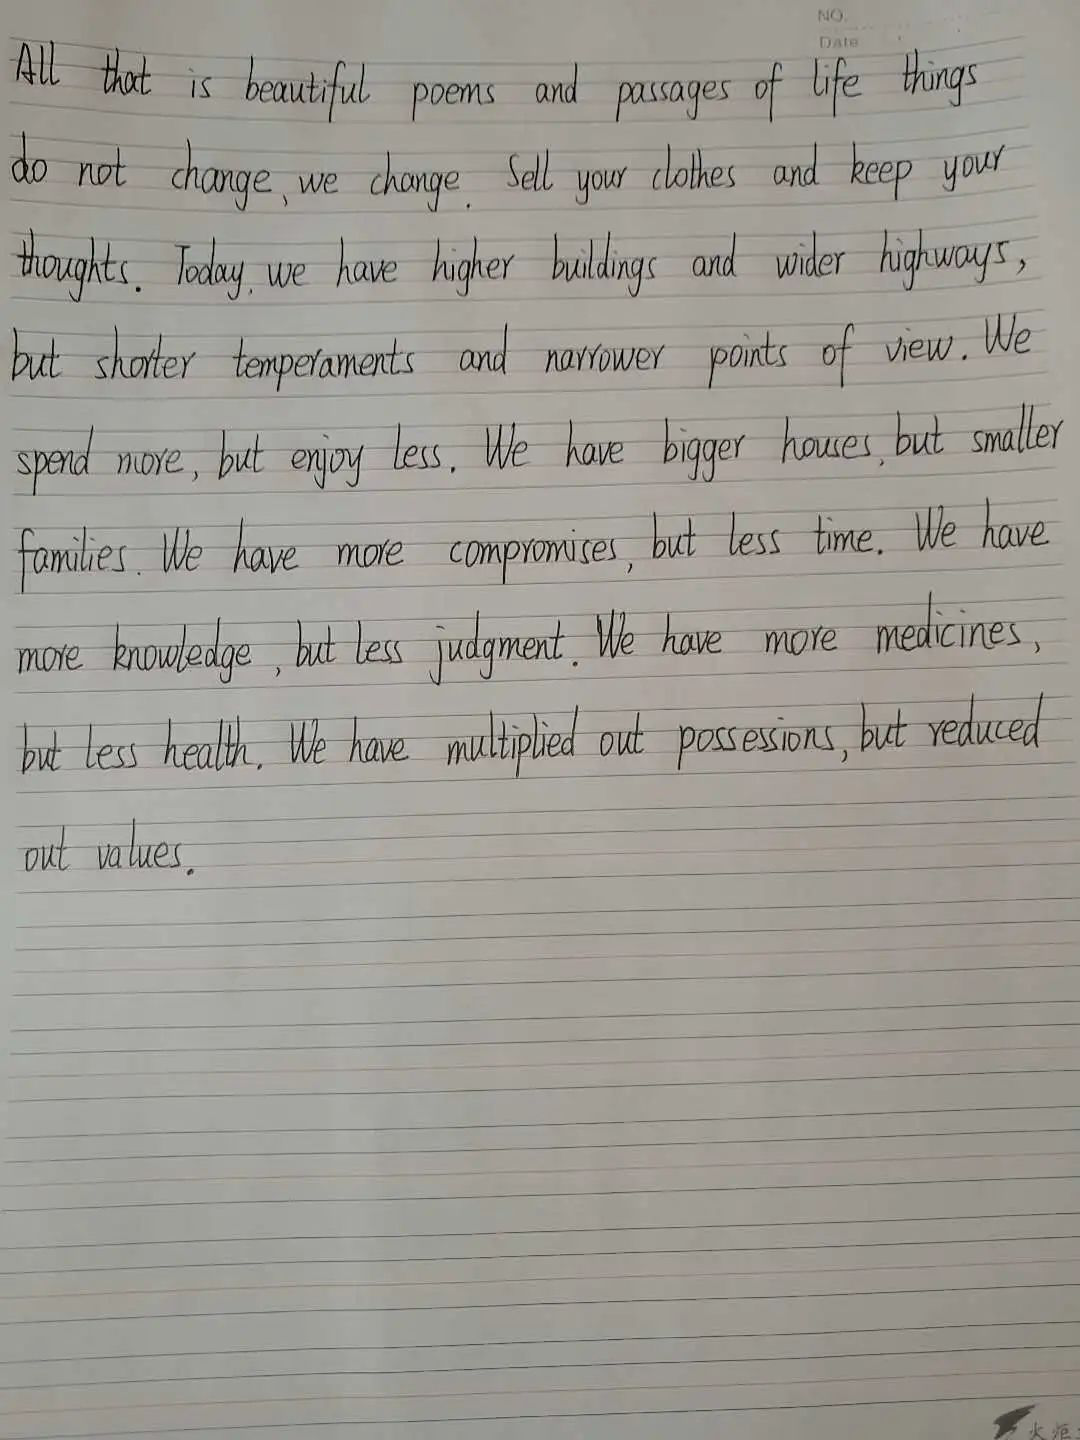 NO.
Date
All that is beautiful poems and passages of life things
do not change, we change. Sell your clothes and keep your
thoughts. Today, we have higher buildings and wider highways,
but shorter temperaments and narrower points of view. We
spend more, but enjoy less. We have bigger houses, but smaller
families. We have more compromises, but less time. We have
more knowledge, but less judgment. We have more medicines,
but less health. We have multiplied out possessions, but reduced
out values.
火炬